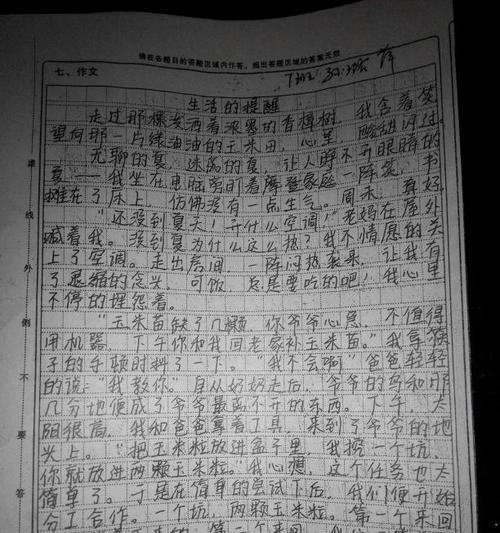 请在各题目的答题区域内作答，超出答题区域的答案无效
七、作文
7班
生活的提醒
走过那棵泼洒着浓墨的香樟树，我含着笑
望向那一片绿油油的玉米田，心里
无聊的夏，迷离的夏，让人睁不开眼睛的
夏——我坐在电脑旁盯着摩登家庭一阵笑，书
摊在了床上，仿佛没有一点生气。周末，真好
“还没到夏天！开什么空调！”老妈在屋外
喊着我。没到夏为什么这么热？我不情愿的关
上了空调。走出房间，一阵闷热袭来，让我有
了退缩的念头，可饭，总是要吃的吧！我心里
不停的埋怨着。
“玉米苗缺了几颗，你爷爷心急，不值得
用机器，下午你和我回老家补玉米苗。”我拿筷
子的手顿时抖了一下。“我不会啊”爸爸轻轻
的说：“我教你。”自从奶奶走后，爷爷的鸟和那
几分地便成了爷爷最离不开的东西。下午，太
阳很高，我和爸爸拿着工具，来到了爷爷的地
头上。“把玉米粒放进盆子里，我挖一个坑，
你就放进两颗玉米粒。”我心想，这个任务也太
简单了。于是在简单的尝试下后，我们便开始
分工合作。一个坑，两颗玉米粒。第一个来回
虚
线
外
倒
不
要
答